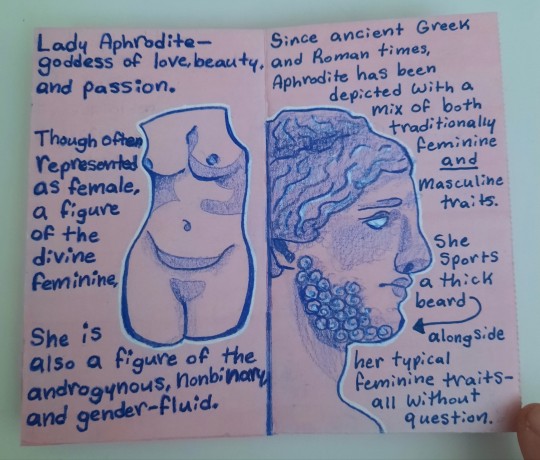 Lady Aphrodite—
goddess of love, beauty,
and passion.
Though often
represented
as female,
a figure
of the
divine
feminine,
She is
also a figure of the
androgynous, nonbinary,
and gender-fluid.
Since ancient Greek
and Roman times,
Aphrodite has been
depicted with a
mix of both
traditionally
feminine
and
masculine
traits.
She
Sports
a thick
beard
alongside
her typical
feminine traits-
all without
question.